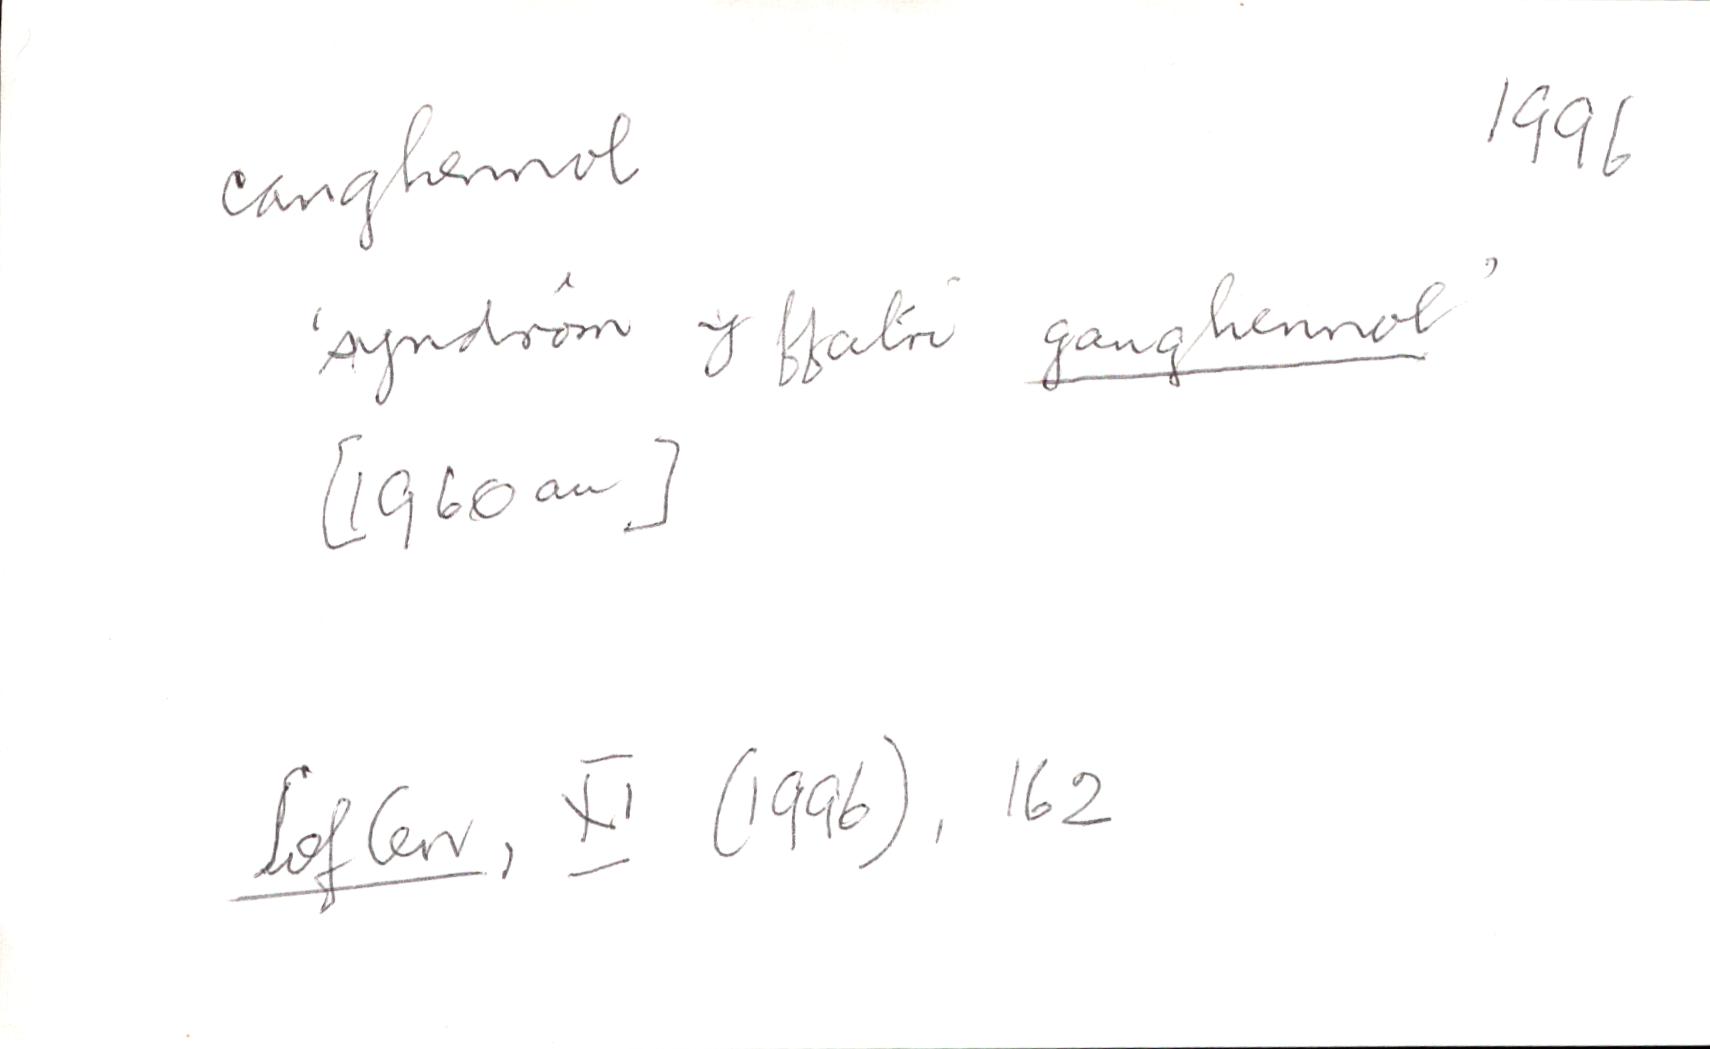 canghennol 1996
'syndrôm y ffatri ganghennol'
[1960au]
Cof Cen, XI (1996), 162